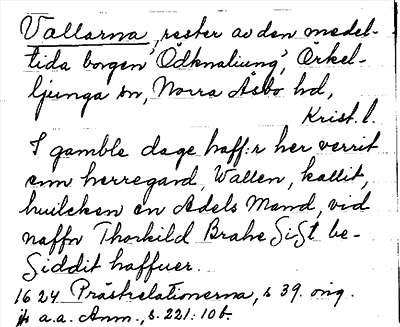 Vallarna, rester av den medel-
tida borgen 'Ödknaliung', Örkel-
ljunga sn, Norra Åsbo hd,
Krist. l.
I gamble dage haff:r her verrit
enn herregaard, Wallen, kallit,
huilcken en Adels Mand, ved
naffn Thorkild Brahe Sist be-
siddit haffuer.
1624 Prästrelationerna, s 39. orig.
a.a. Anm., s. 221: 10 b.